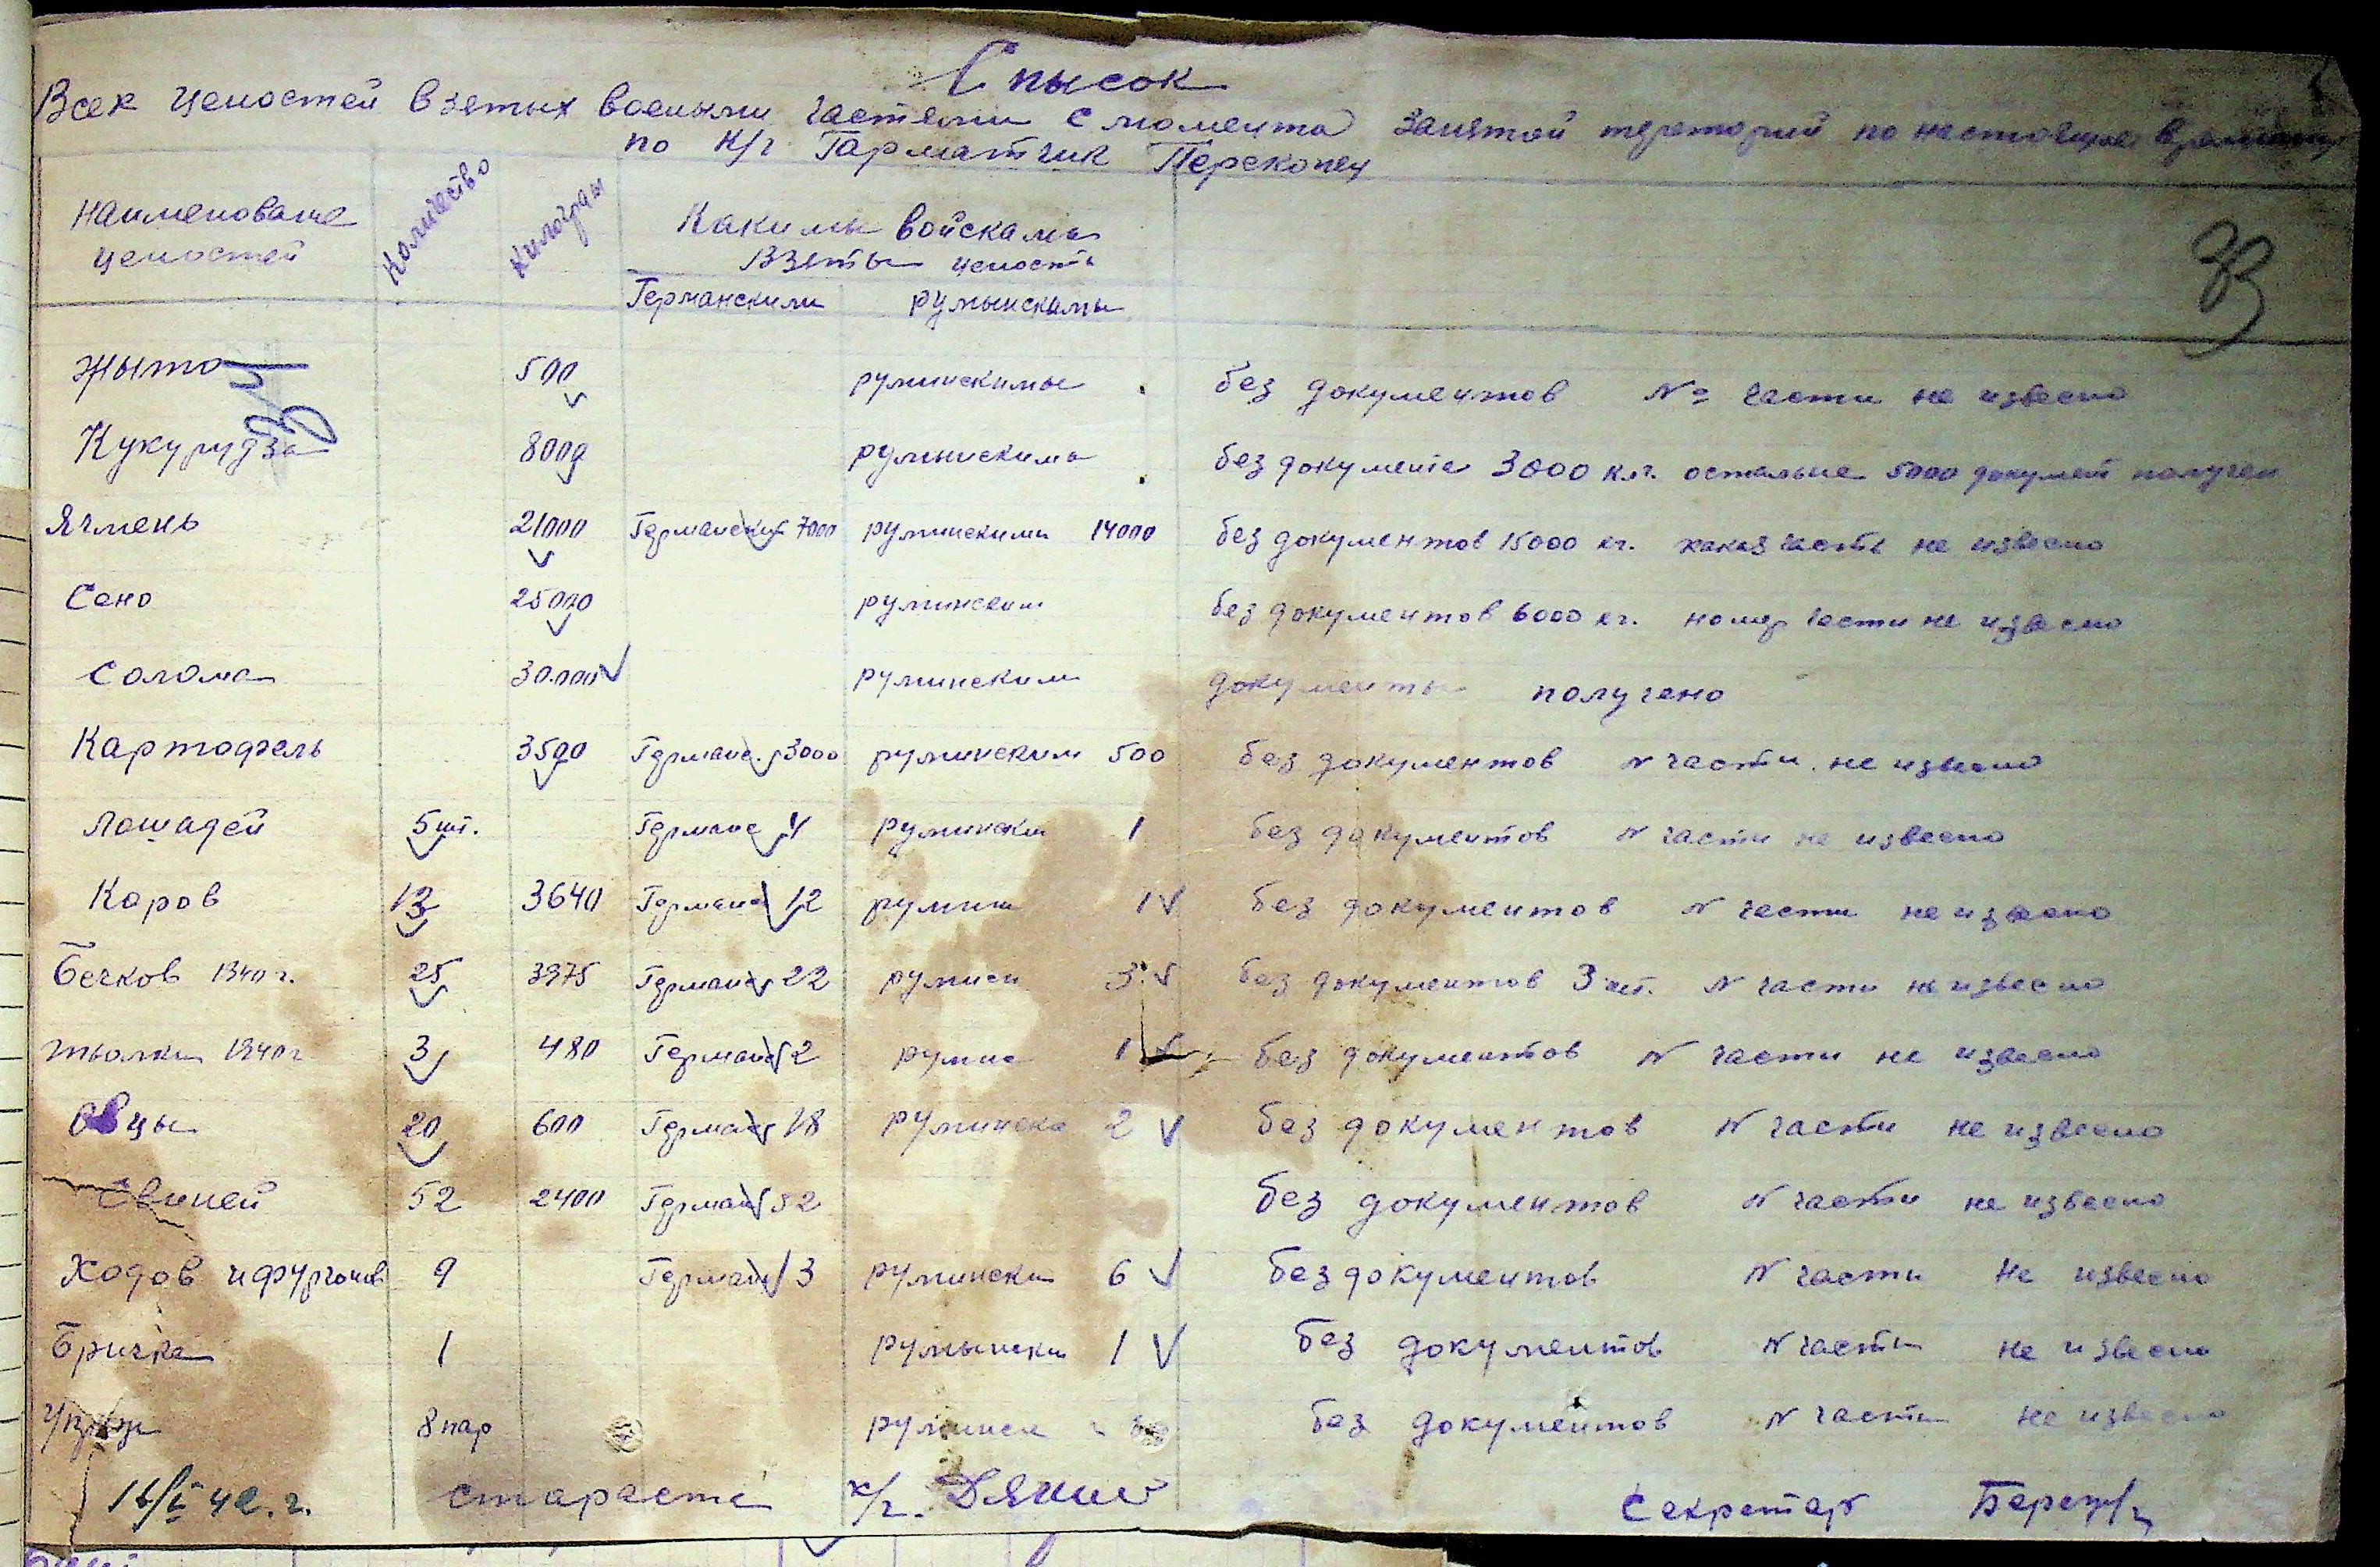 Спысок
Всех ценостей взетых военыме частями с момента занятой територий по настоящее время
по к/г Гарматчик Перекопец
Наименование ценостей Количество Килограмы Какимы войсками Взеты ценость
Германскими румынскамы
33
34
Жыто 500 руминскимы без документов № части не извесно
Кукурудза 8000 румынскими без документа 3000 клг. остальные 5000 документ получен
Ячмень 21000 Германски 7000 руминскими 14000 без документов 15000 кг. какая часть не извесно
Сено 25000 руминским без документов 6000 кг. номер части не извесно
Солома 30.000 руминским документы получено
Картофель 3500 Германс. 3000 руминским 500 без документов N части не извесно
Лошадей 5 шт. Германс 4 румински 1 без документов N части не извесно
Коров 13 3640 Германс 12 румин 1 без документов N части не извесно
Бечков 1940 г. 25 3975 Германс 22 руминс 3 без документов 3 шт. N части не извесно
тьолки 1940 г 3 480 Германс 2 румин 1 без документов N части не извесно
Овцы 20 600 Германс 18 руминска 2 без документов N части не извесно
Свиней 52 2400 Герман 52 без документов N части не извесно
Ходов и фургонов 9 Герман 3 румински 6 без документов N части не извесно
Бричка 1 румынски 1 без документов N части не извесно
8 пар руминск без документов N части не извесно
16/I 42. г. стараста к/г. Секретар